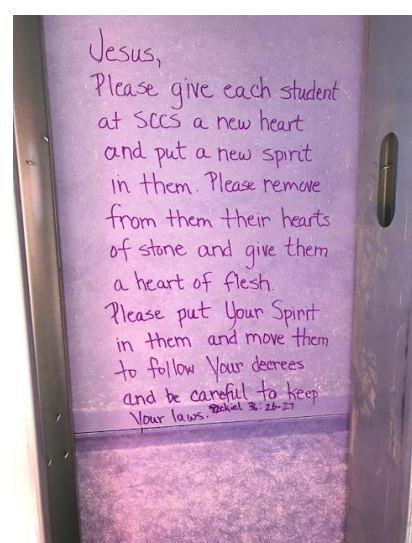 Jesus,
Please give each student
at SCCS a new heart
and put a new spirit
in them. Please remove
from them their hearts
of stone and give them
a heart of flesh.
Please put Your Spirit
in them and move them
to follow Your decrees
and be careful to keep
Your laws. Ezekiel 36:26-27